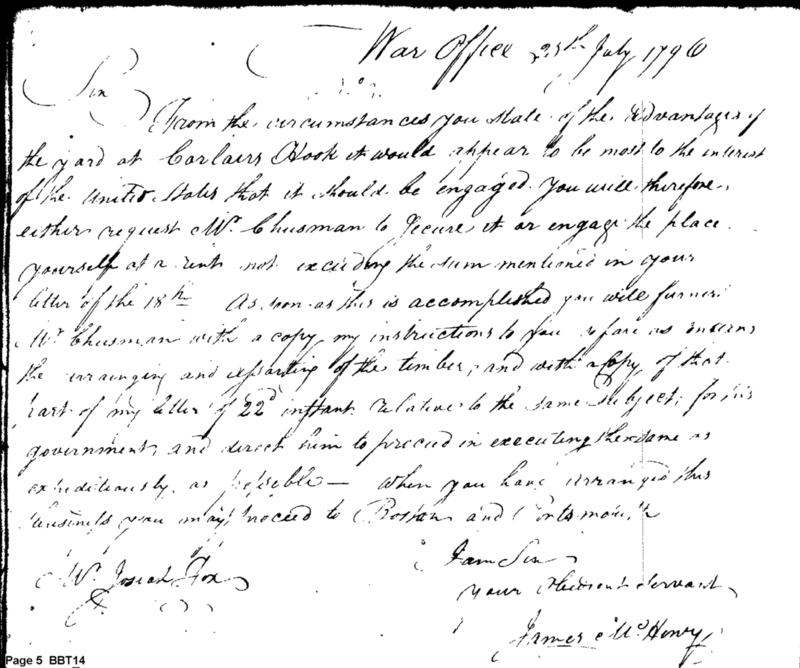 War Office 25th July 1796
Sir
From the circumstances you state of the advantages of
the yard at Corlairs Hook it would appear to be most to the interest
of the United States that it should be engaged. You will therefore,
either request Mr. Chusman to secure it or engage the place
yourself at a rent not exceeding the sum mentioned in your
letter of the 18th As soon as this is accomplished you will furnish
Mr Chusman with a copy my instructions to you so far as concerns
the arranging and assorting of the timber, and with a Copy of that
part of my letter of 22d instant relative to the same subject; for his
government, and direct him to proceed in executing the same as
expeditiously, as possible — When you have arranged this
business you may proceed to Boston and Portsmouth
I am Sir
Mr. Josiah Fox
your obedient servant
James McHenry
Page 5 BBT14